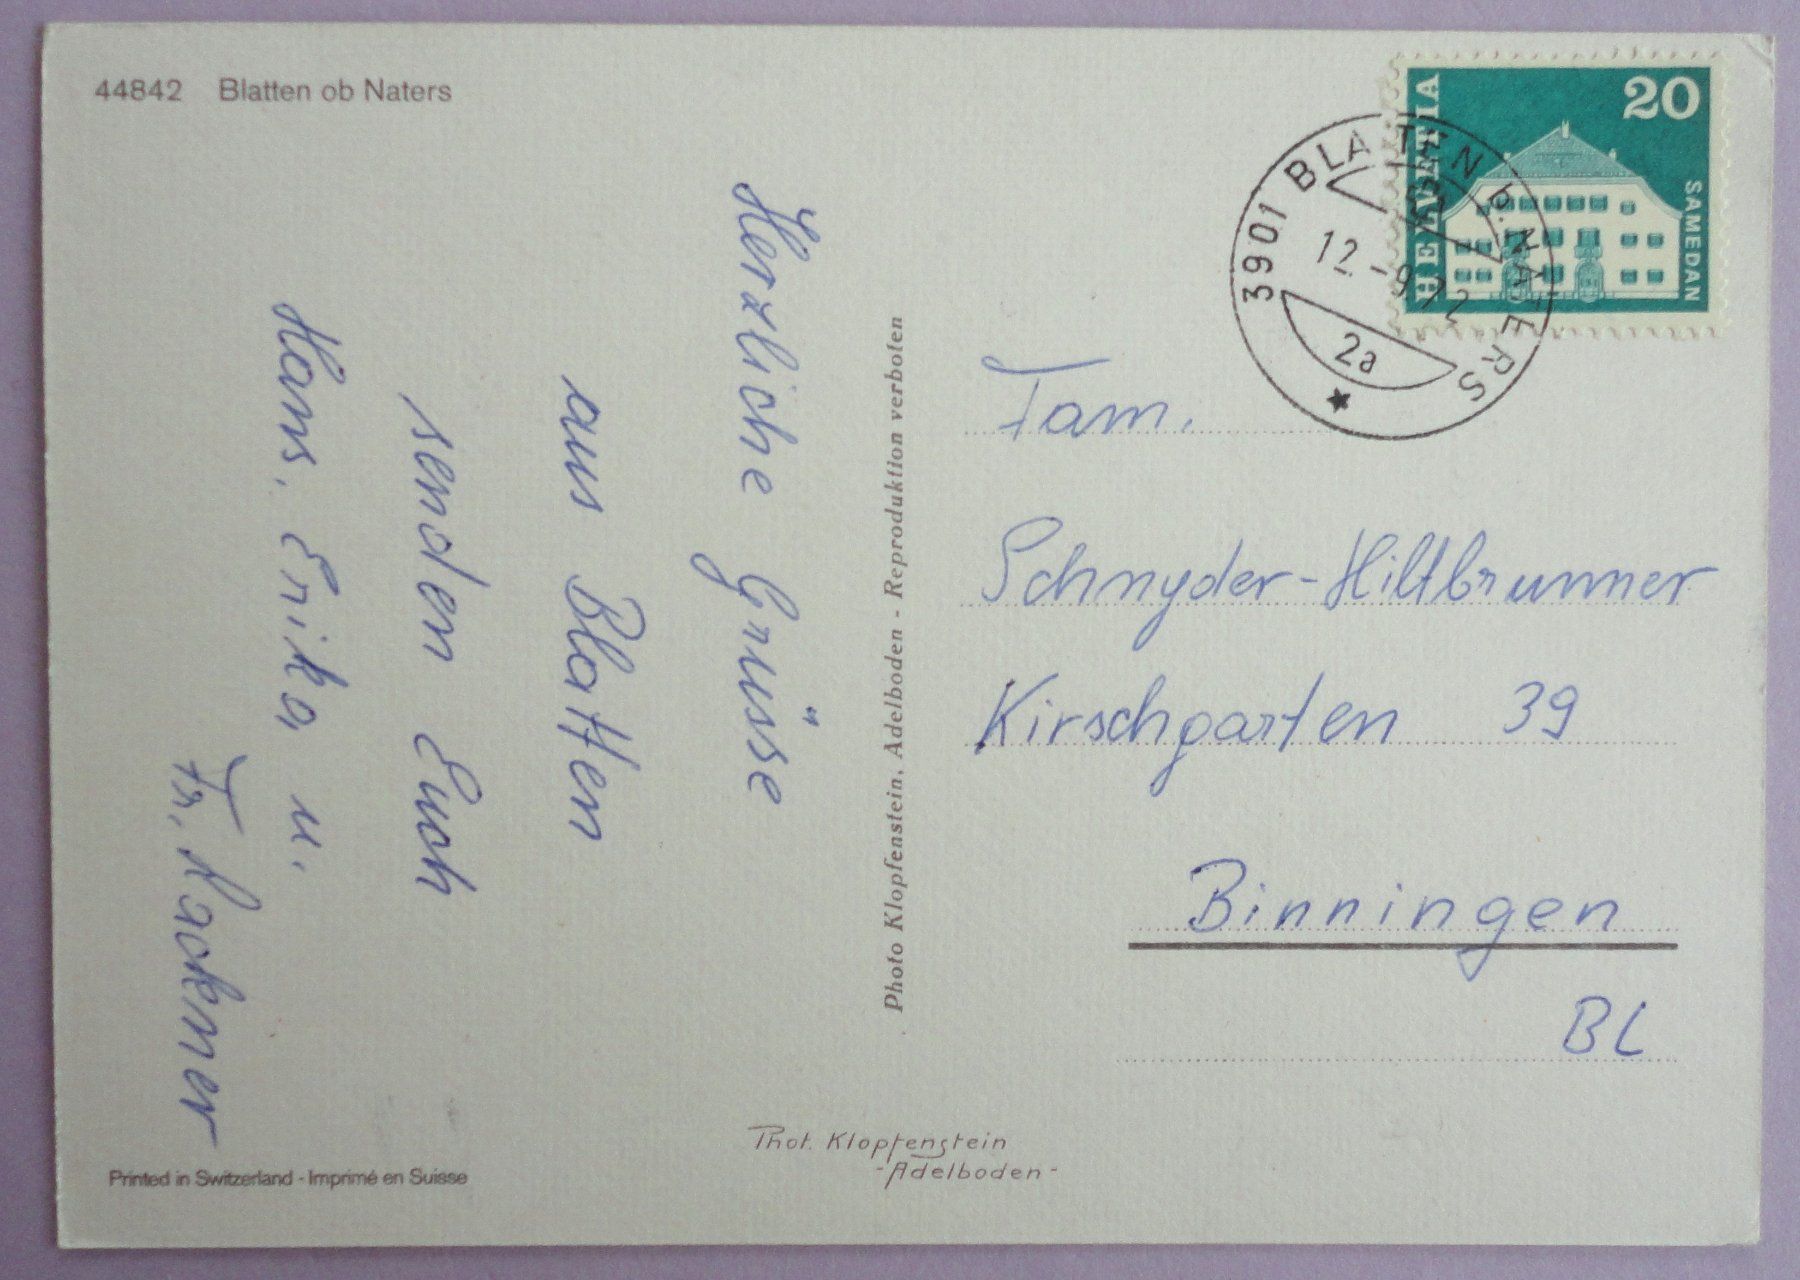 44842 Blatten ob Naters
Herzliche Grüsse
aus Blatten
senden Euch
Hans, Erika u.
Fr. Mackner
Photo Klopfenstein, Adelboden - Reproduktion verboten
HELVETIA
20
SAMEDAN
3901 BLATTEN b. NATERS
12.-9.72
2a
Fam.
Schnyder-Hiltbrunner
Kirschgarten 39
Binningen
BL
Phot. Klopfenstein
-Adelboden-
Printed in Switzerland - Imprimé en Suisse